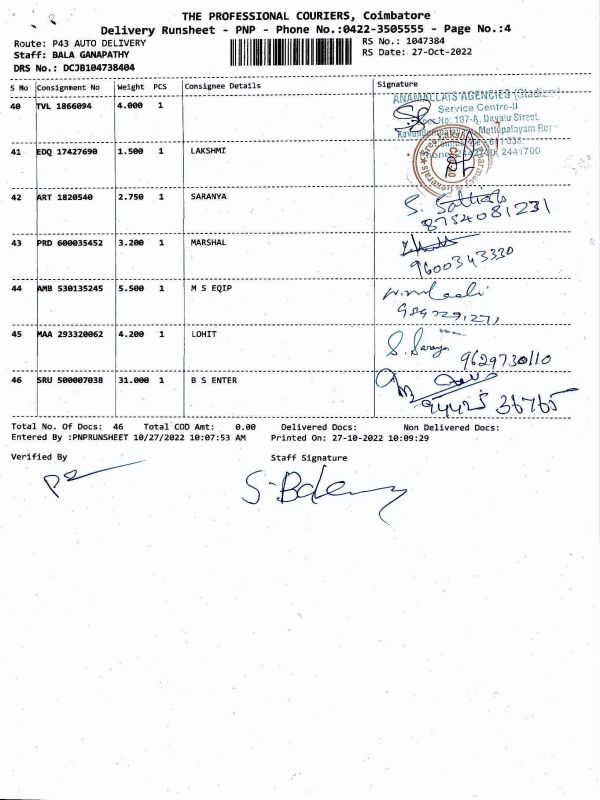 THE PROFESSIONAL COURIERS, Coimbatore
Delivery Runsheet - PNP - Phone No.:0422-3505555 - Page No.:4
Route: P43 AUTO DELIVERY
RS No.: 1047384
Staff: BALA GANAPATHY
RS Date: 27-Oct-2022
DRS No.: DCJB104738404
S No Consignment No Weight PCS Consignee Details Signature
40 TVL 1866094 4.000 1
ANAMALLAIS AGENCIES
Service Centre-II
187-A, Dayalu Street,
Mettupalayam
2441700
41 EDQ 17427690 1.500 1 LAKSHMI
42 ART 1820540 2.750 1 SARANYA
8754081231
43 PRD 600035452 3.200 1 MARSHAL
9600343330
44 AMB 530135245 5.500 1 M S EQIP
45 MAA 293320062 4.200 1 LOHIT
S. Saranya
9629730110
46 SRU 500007038 31.000 1 B S ENTER
94425 36765
Total No. Of Docs: 46 Total COD Amt: 0.00 Delivered Docs: Non Delivered Docs:
Entered By :PNPRUNSHEET 10/27/2022 10:07:53 AM Printed On: 27-10-2022 10:09:29
Verified By Staff Signature